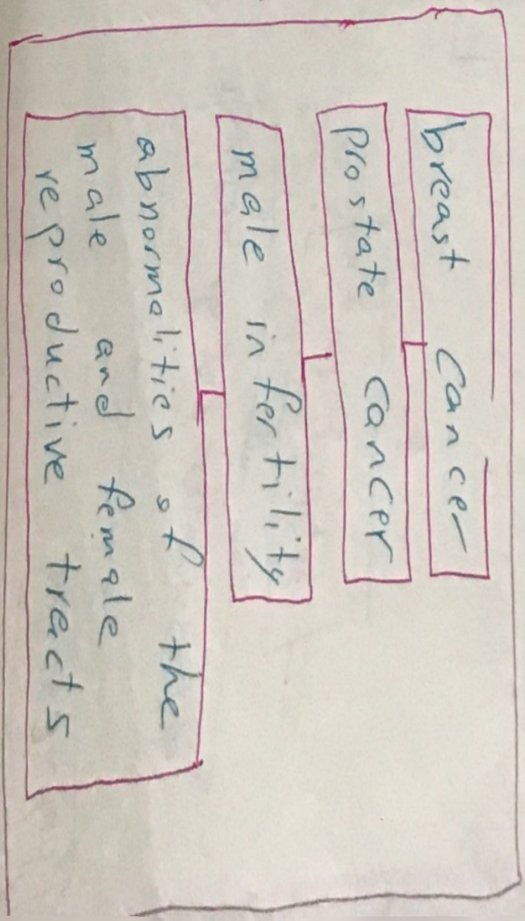 breast cancer
prostate cancer
male infertility
abnormalities of the
male and female
reproductive treacts